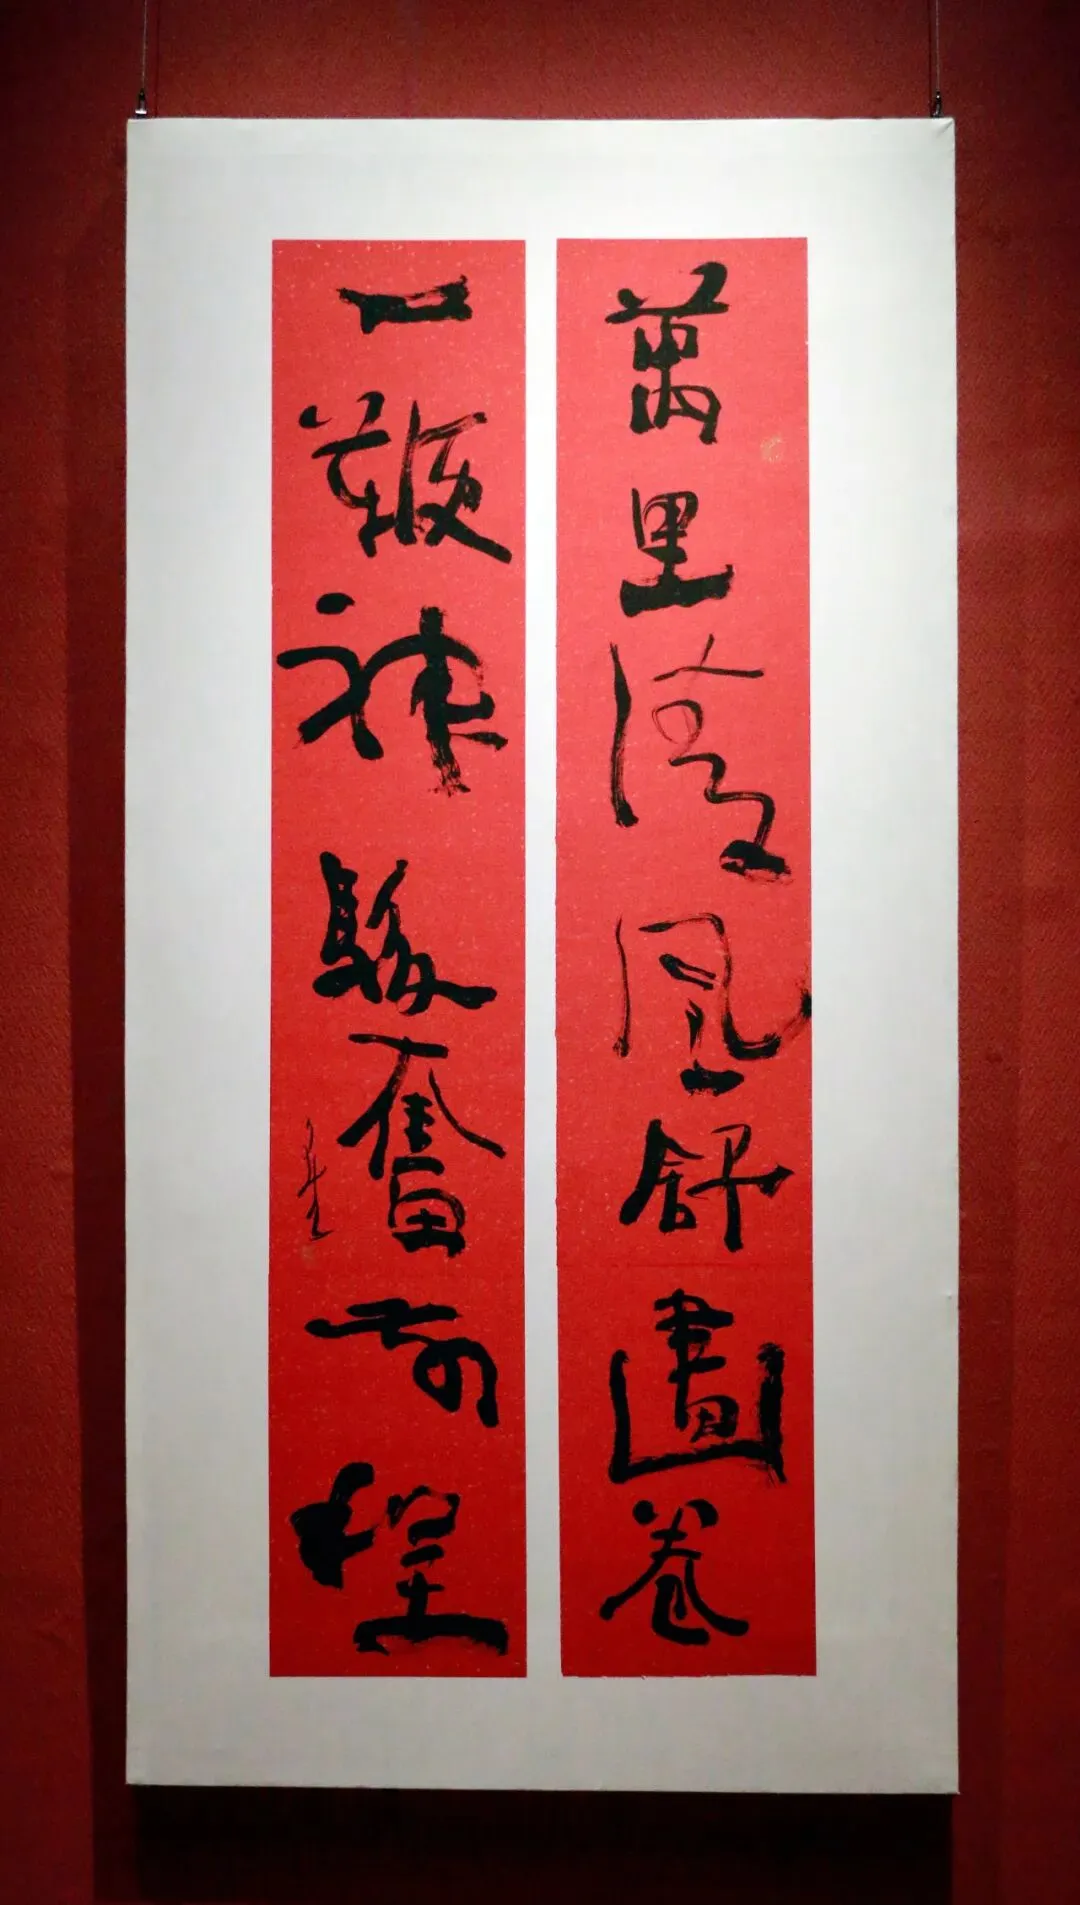 萬里風舒畫卷
一鞭神駿奮前程